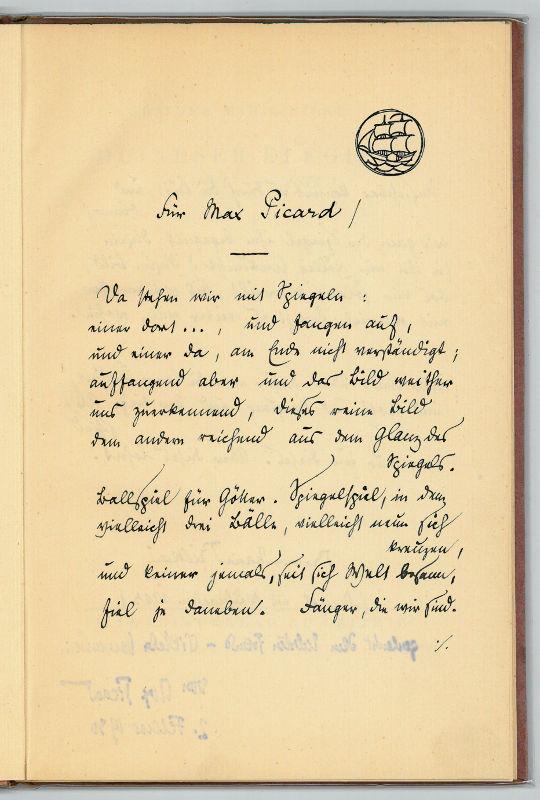 Für Max Picard /
Da stehen wir mit Spiegeln :
einer dort ... , und fangen auf,
und einer da, am Ende nicht verständigt ;
auffangend aber und das Bild weither
uns zuerkennend, dieses reine Bild
dem andern reichend aus dem Glanz des
Spiegels.
Ballspiel für Götter. Spiegelspiel, in dem
vielleicht drei Bälle, vielleicht neun sich
kreuzen,
und keiner jemals, seit sich Welt besann,
fiel je daneben. Fänger, die wir sind.
./.